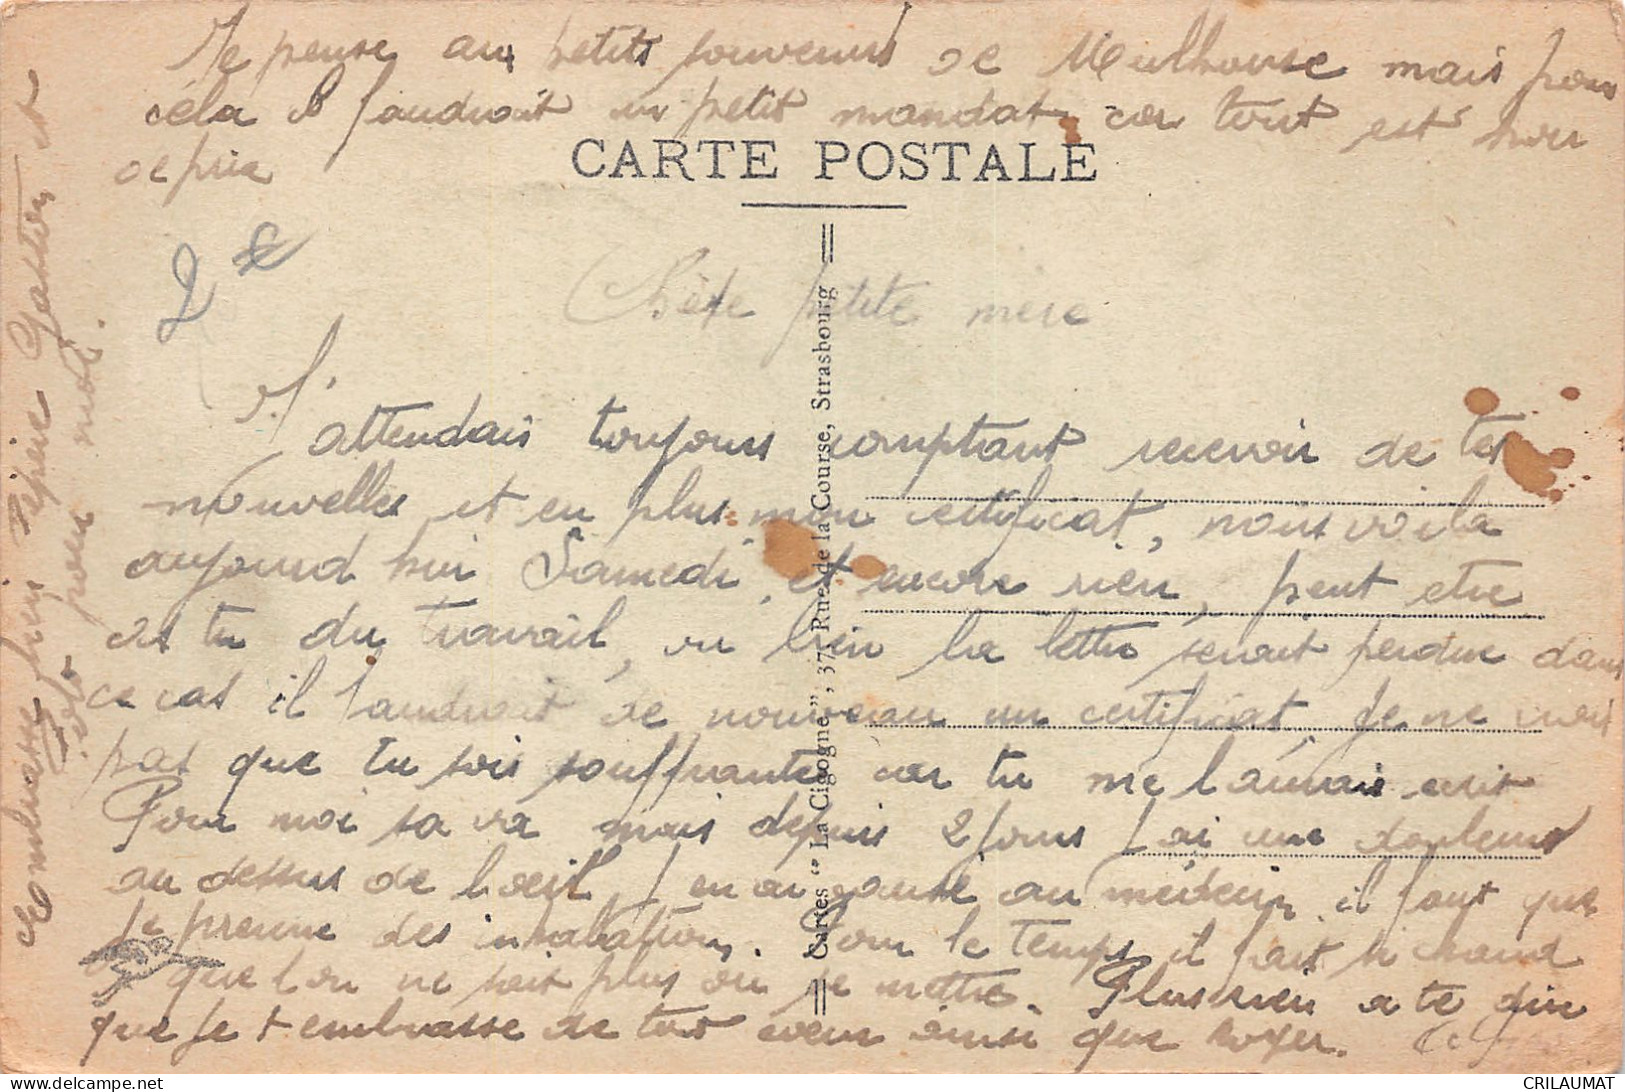 Je pense aux petits souvenirs de Mulhouse mais pour
cela il faudrait un petit mandat car tout est hor
de prix
CARTE POSTALE
2€
Chère petite mère
J'attendais toujours comptant recevoir de tes
nouvelles et en plus mon certificat, nous voila
aujourd hui Samedi et encore rien, peut etre
as tu du travail, ou bien la lettre serait perdue dans
ce cas il faudrait de nouveau un certificat, Je ne crois
pas que tu sois souffrante car tu me l'aurais ecrit
Pour moi sa va mais depuis 2 jours J ai une douleur
au dessus de l oeil, J en ai cause au médecin il faut que
je prenne des inhalations. Pour le temps il fait si chaud
que l on ne sait plus où se mettre. Plus rien a te dire
que je t embrasse de tout coeur ainsi que Roger.
embrasse bien Pépère Gaston et
Jojo pour moi.
Cartes "La Cigogne", 37, Rue de la Course, Strasbourg
CRILAUMAT